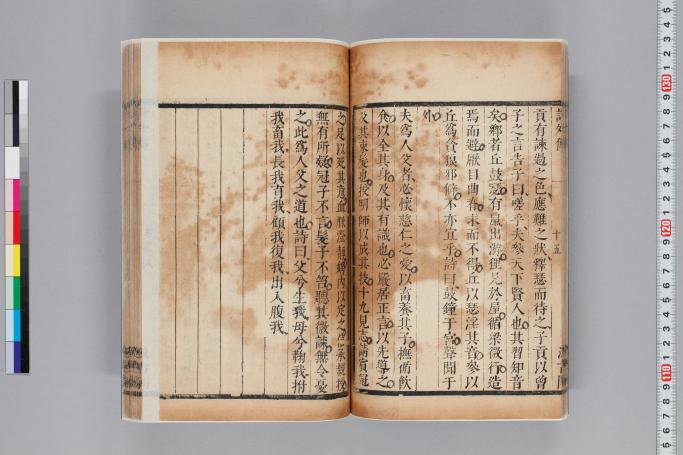 貢有諫過之色應難之狀釋瑟而待之子貢以曾
子之言告子曰嗟乎夫參天下賢人也其習知音
矣鄉者丘鼓瑟有鼠出游狸見於屋循梁微行造
焉而避厭目曲脊求而不得丘以瑟淫其音參以
丘為貪狼邪僻不亦宜乎詩曰鼓鐘于宮聲聞于
外
夫為人父者必懷慈仁之愛以畜養其子撫循飲
食以全其身及其有識也必嚴居正言以先導之
及其束髮也授明師以成其技十九見志請賓冠
之足以死其意血脈澄靜娉內以定之信承親授
無有所疑冠子不言髮子不笞聽其微諫無令憂
之此為人父之道也詩曰父兮生我母兮鞠我拊
我畜我長我育我顧我復我出入腹我
十五